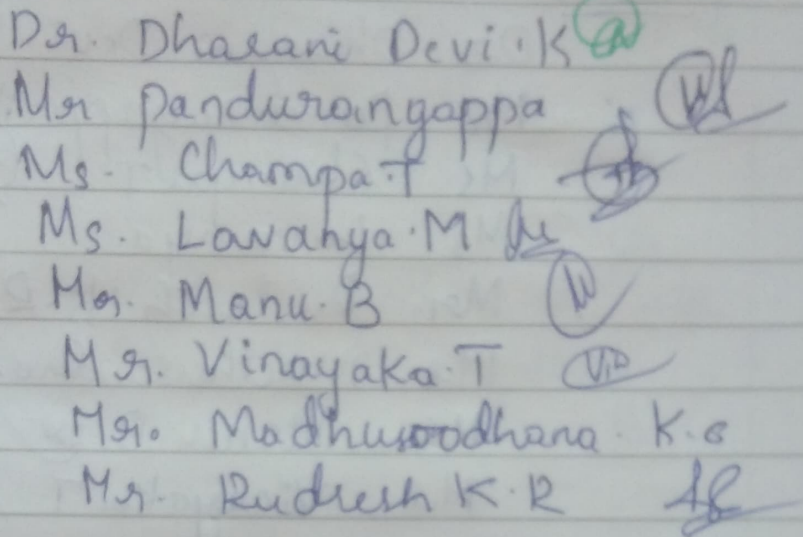 Dr. Dharani Devi.K
Mr Pandurangappa
Ms. Champa.T
Ms. Lavanya.M
Mr. Manu.B
Mr. Vinayaka.T
Mr. Madhusoodhana. K.S
Mr. Rudresh K.R